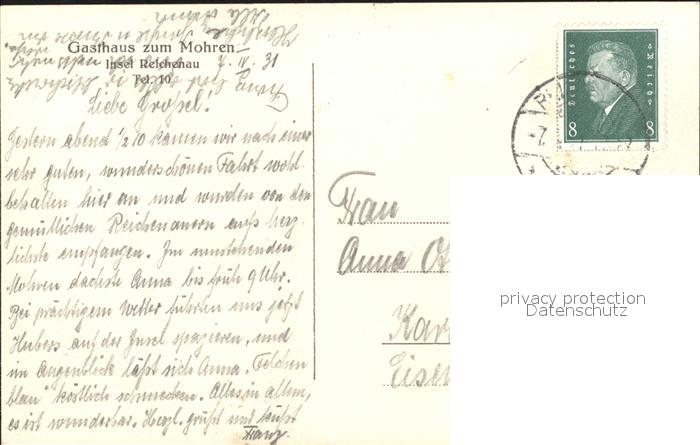 Gasthaus zum Mohren
Insel Reichenau
Tel. 10
7. IV. 31
Liebe Großel!
Gestern abend ½ 10 kamen wir nach einer
sehr guten, wunderschönen Fahrt wohl-
behalten hier an und wurden von den
gemütlichen Reichenauern aufs herz-
lichste empfangen. Im umstehenden
Mohren dachste Anna bis früh 9 Uhr.
Bei prächtigem Wetter führten uns jetzt
Hubers auf der Insel spazieren, und
im Augenblick läßt sich Anna "Felchen
blau" köstlich schmecken. Alles in allem,
es ist wunderbar. Herzl. grüßt und küßt
Franz.
Deutsches Reich
8 8
Frau
Anna
Kar
Eisen
privacy protection
Datenschutz